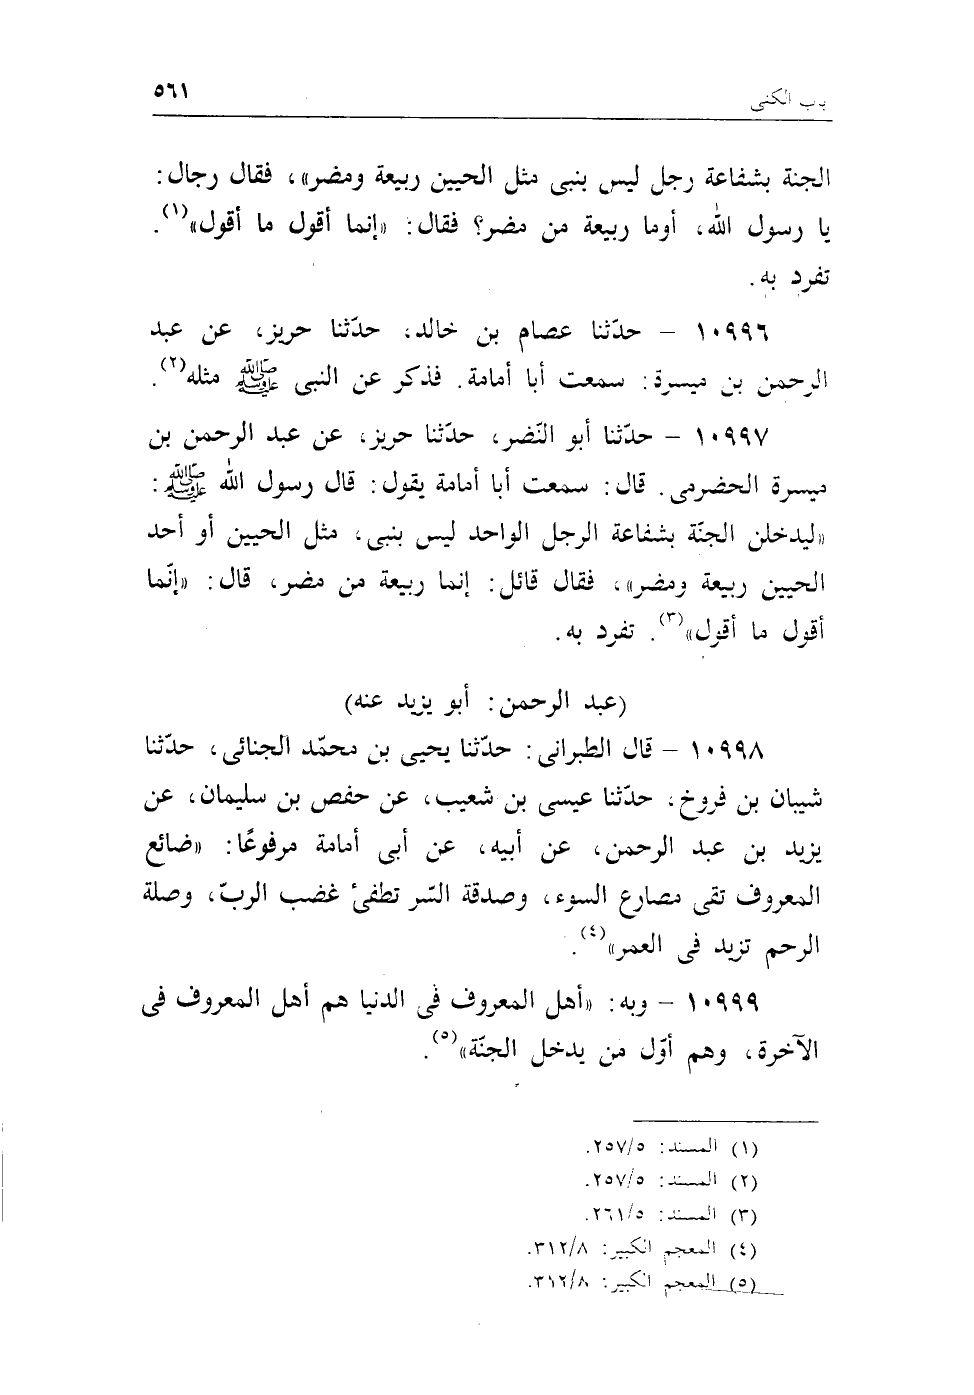 باب الكنى
٥٦١
الجنة بشفاعة رجل ليس بنبى مثل الحيين ربيعة ومضر»، فقال رجال:
يا رسول الله، أوما ربيعة من مضر؟ فقال: «إنما أقول ما أقول»(١).
تفرد به.
١٠٩٩٦ - حدّثنا عصام بن خالد، حدّثنا حريز، عن عبد
الرحمن بن ميسرة: سمعت أبا أمامة. فذكر عن النبى ﷺ مثله(٢).
١٠٩٩٧ - حدّثنا أبو النّضر، حدّثنا حريز، عن عبد الرحمن بن
ميسرة الحضرمى. قال: سمعت أبا أمامة يقول: قال رسول الله ﷺ:
«ليدخلن الجنّة بشفاعة الرجل الواحد ليس بنبى، مثل الحيين أو أحد
الحيين ربيعة ومضر»، فقال قائل: إنما ربيعة من مضر، قال: «إنّما
أقول ما أقول»(٣). تفرد به.
(عبد الرحمن: أبو يزيد عنه)
١٠٩٩٨ - قال الطبرانى: حدّثنا يحيى بن محمّد الجنائى، حدّثنا
شيبان بن فروخ، حدّثنا عيسى بن شعيب، عن حفص بن سليمان، عن
يزيد بن عبد الرحمن، عن أبيه، عن أبى أمامة مرفوعًا: «ضائع
المعروف تقى مصارع السوء، وصدقة السّر تطفئ غضب الربّ، وصلة
الرحم تزيد فى العمر»(٤).
١٠٩٩٩ - وبه: «أهل المعروف فى الدنيا هم أهل المعروف فى
الآخرة، وهم أوّل من يدخل الجنّة»(٥).
(١) المسند: ٢٥٧/٥.
(٢) المسند: ٢٥٧/٥.
(٣) المسند: ٢٦١/٥.
(٤) المعجم الكبير: ٣١٢/٨.
(٥) المعجم الكبير: ٣١٢/٨.